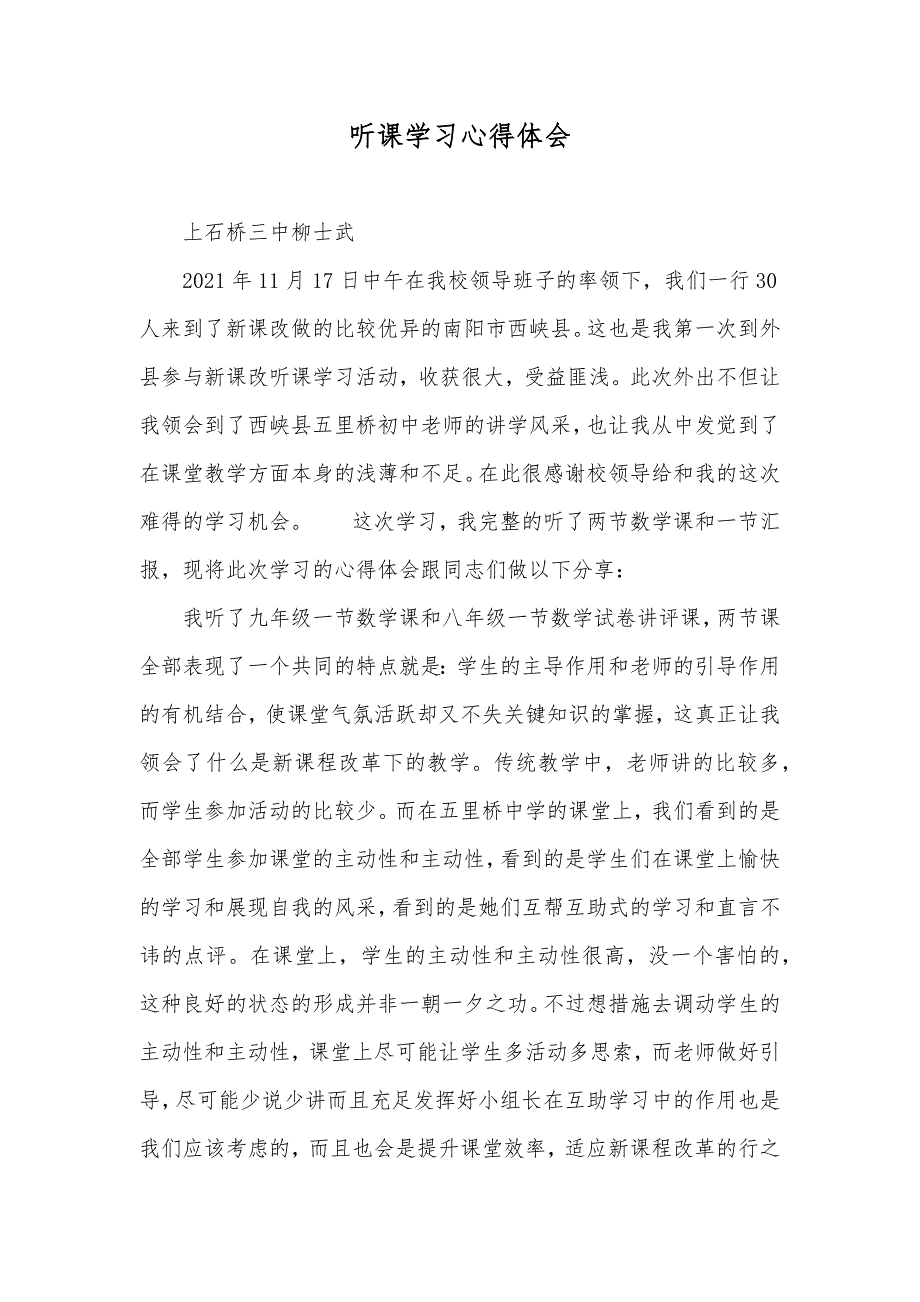 听课学习心得体会
上石桥三中柳士武
2021 年 11 月 17 日中午在我校领导班子的率领下，我们一行 30
人来到了新课改做的比较优异的南阳市西峡县。这也是我第一次到外
县参与新课改听课学习活动，收获很大，受益匪浅。此次外出不但让
我领会到了西峡县五里桥初中老师的讲学风采，也让我从中发觉到了
在课堂教学方面本身的浅薄和不足。在此很感谢校领导给和我的这次
难得的学习机会。　　这次学习，我完整的听了两节数学课和一节汇
报，现将此次学习的心得体会跟同志们做以下分享：
我听了九年级一节数学课和八年级一节数学试卷讲评课，两节课
全部表现了一个共同的特点就是：学生的主导作用和老师的引导作用
的有机结合，使课堂气氛活跃却又不失关键知识的掌握，这真正让我
领会了什么是新课程改革下的教学。传统教学中，老师讲的比较多，
而学生参加活动的比较少。而在五里桥中学的课堂上，我们看到的是
全部学生参加课堂的主动性和主动性，看到的是学生们在课堂上愉快
的学习和展现自我的风采，看到的是她们互帮互助式的学习和直言不
讳的点评。在课堂上，学生的主动性和主动性很高，没一个害怕的，
这种良好的状态的形成并非一朝一夕之功。不过想措施去调动学生的
主动性和主动性，课堂上尽可能让学生多活动多思索，而老师做好引
导，尽可能少说少讲而且充足发挥好小组长在互助学习中的作用也是
我们应该考虑的，而且也会是提升课堂效率，适应新课程改革的行之